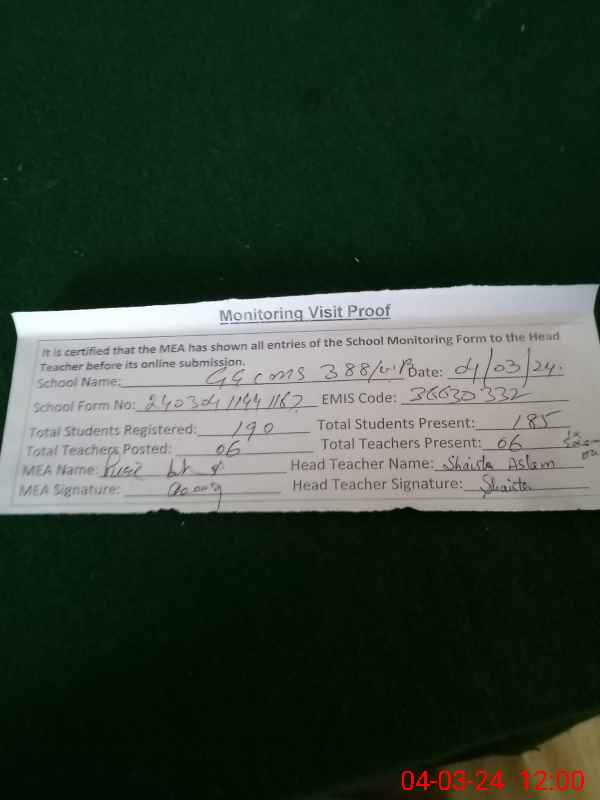 Monitoring Visit Proof
It is certified that the MEA has shown all entries of the School Monitoring Form to the Head
Teacher before its online submission.
School Name: GGCMS 388/W.B Date: 04/03/24.
School Form No: EMIS Code: 36630332
Total Students Registered: 190 Total Students Present: 185
Total Teachers Posted: 06 Total Teachers Present: 06
MEA Name: Head Teacher Name: Shaista Aslam
MEA Signature: Head Teacher Signature: Shaista
04-03-24 12:00